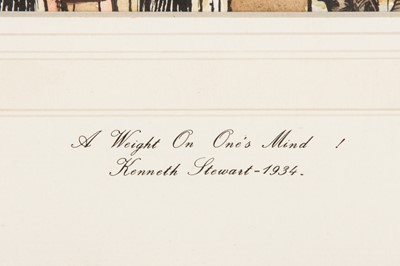 A Weight On One's Mind !
Kenneth Stewart-1934.